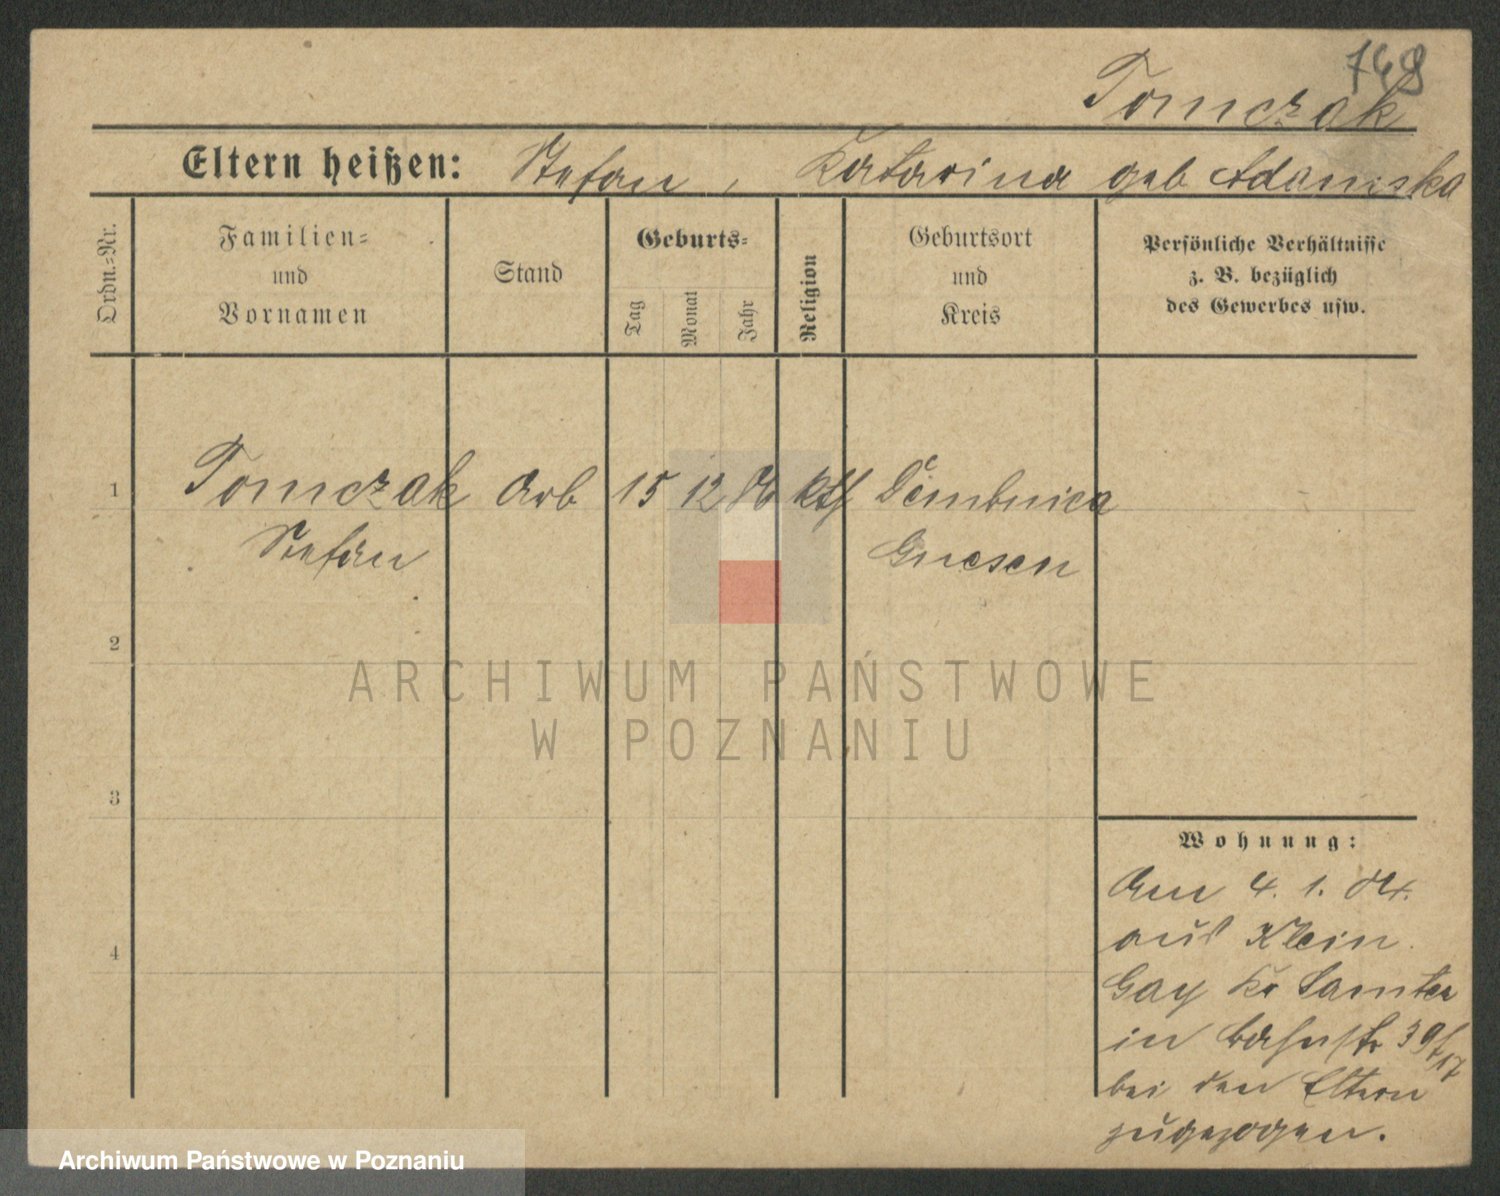 748
Tomczak
Eltern heißen: Stefan, Katarina geb Adamska
Ordn.=Nr.
Familien=
und
Vornamen
Stand
Geburts=
Tag
Monat
Jahr
Religion
Geburtsort
und
Kreis
Persönliche Verhältnisse
z. B. bezüglich
des Gewerbes usw.
1
Tomczak Arb 15 12 kth Dembnica
Stefan Gnesen
2
ARCHIWUM PAŃSTWOWE
W POZNANIU
3
Wohnung:
Am 4. 1.
aus Klein
4
Gay Kr Samter
in Bahnstr 39/17
bei den Eltern
zugezogen.
Archiwum Państwowe w Poznaniu